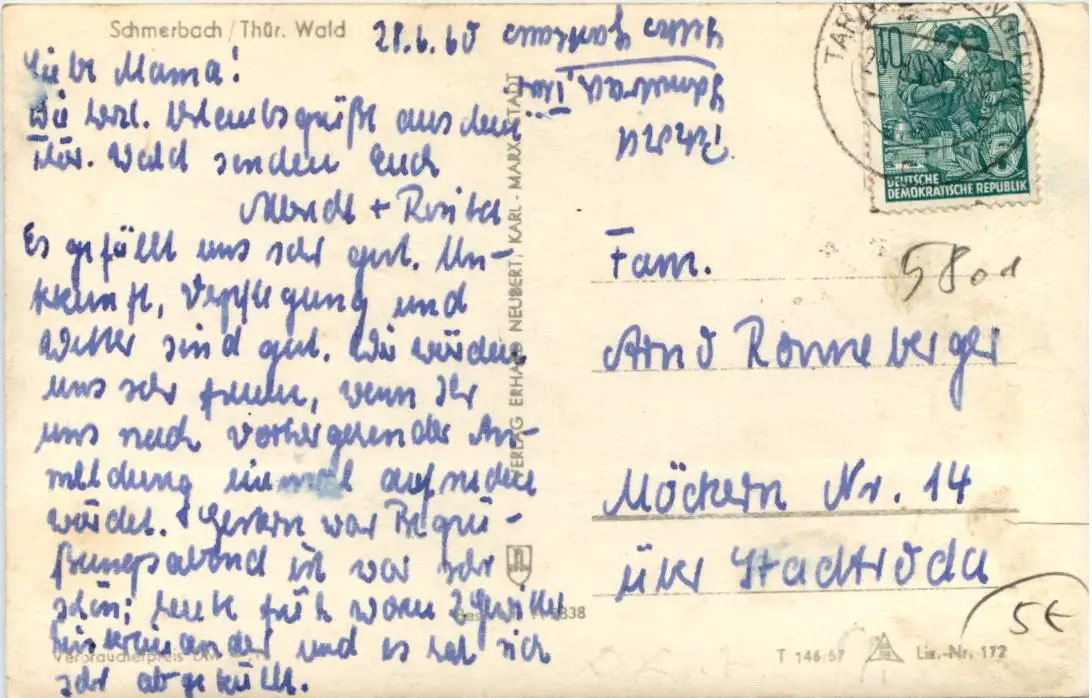 Schmerbach / Thür. Wald
28.6.60
Liebe Mama!
Die herzl. Urlaubsgrüße aus dem
Thür. Wald senden Euch
+ Rosita
Es gefällt uns sehr gut. Un-
terkunft, Verpflegung und
Wetter sind gut. Wir würden
uns sehr freuen, wenn Ihr
uns nach vorhergehender An-
meldung einmal aufsuchen
würdet. Gestern war Begrü-
ßungsabend es war sehr
schön; heute früh waren 2 Gewitter
hintereinander und es hat sich
sehr abgekühlt.
VERLAG ERHARD NEUBERT, KARL-MARX-STADT
Verbraucherpreis
8838
60
DEUTSCHE
DEMOKRATISCHE REPUBLIK
5
Fam.
5801
Arnd Ronneberger
Möckern Nr. 14
über Stadtroda
5€
T 146/57
Liz.-Nr. 172